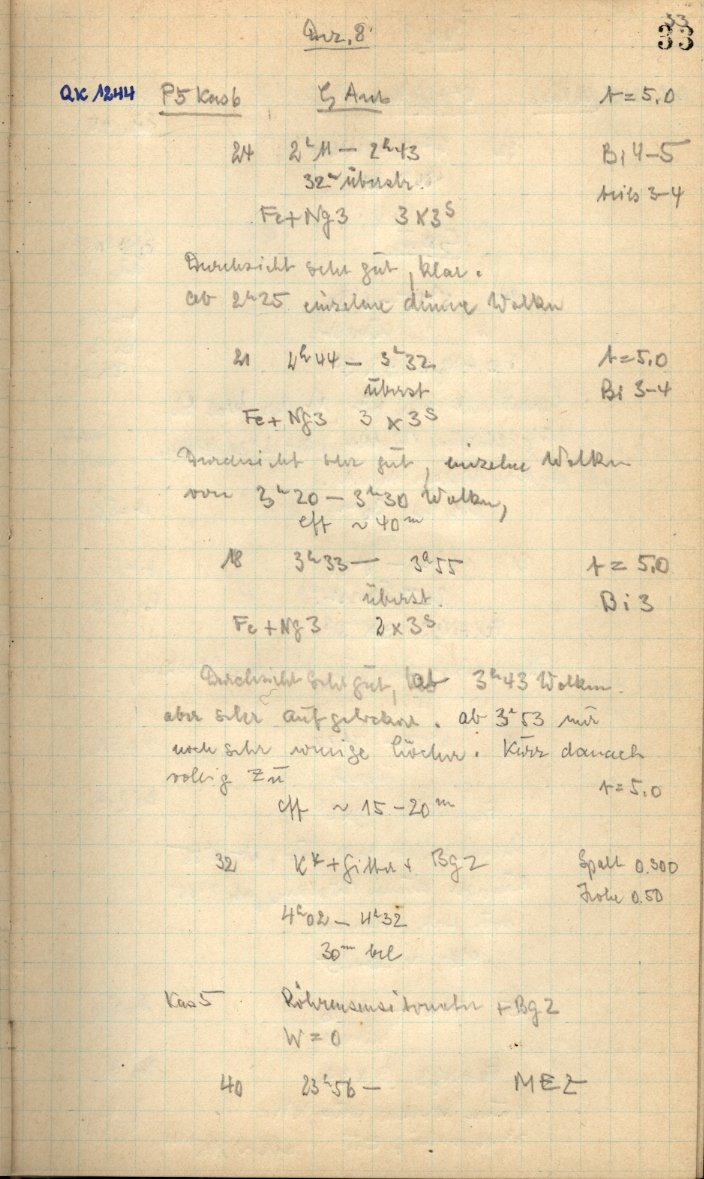 Dez. 8
33
QK 1244 P5 Kas6 ζ Aur t=5,0
24 2h11 – 2h43 Bi 4–5
32m überstr. teils 3–4
Fe+Ng3 3×3s
Durchsicht sehr gut, klar.
ab 2h25 einzelne dünne Wolken
21 2h44 – 3h32 t=5,0
überst Bi 3–4
Fe+Ng3 3×3s
Durchsicht sehr gut, einzelne Wolken
von 3h20 – 3h30 Wolken,
eff ~ 40m
18 3h33 – 3h55 t=5,0
überst. Bi 3
Fe+Ng3 2×3s
Durchsicht sehr gut, ab 3h43 Wolken
aber sehr aufgelockert. ab 3h53 nur
noch sehr wenige Löcher. Kurz danach
völlig zu
t=5,0
eff ~ 15–20m
32 K*+Gitter+ Bg2 Spalt 0.300
Höhe 0.50
4h02 – 4h32
30m bel
Kas5 Röhrensensitometer +Bg2
W=0
40 23h56 – MEZ